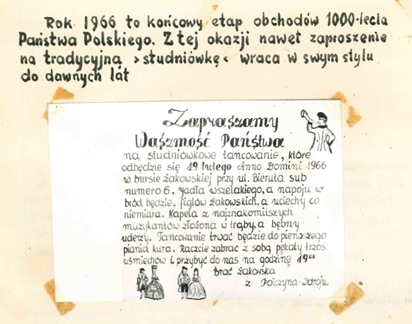 Rok 1966 to końcowy etap obchodów 1000-lecia
Państwa Polskiego. Z tej okazji nawet zaproszenie
na tradycyjną >studniówkę< wraca w swym stylu
do dawnych lat
Zapraszamy
Waszmość Państwa
na studniówkowe tancowanie, które
odbędzie się 19 lutego Anno Domini 1966
w bursie żakowskiej przy ul. Bieruta sub
numero 6. Jadła wszelakiego, a napoju w
bród będzie, figlów żakowskich, a uciechy co
niemiara. Kapela z najznakomitszych
muzykantów złożona w trąby, a bębny
uderzy. Tańcowanie trwać będzie do pierwszego
piania kura. Raczcie zabrać z sobą pękaty trzos
uśmiechów i przybyć do nas na godzinę 19⁰⁰
brać żakowska
z Połczyna-Zdroju.